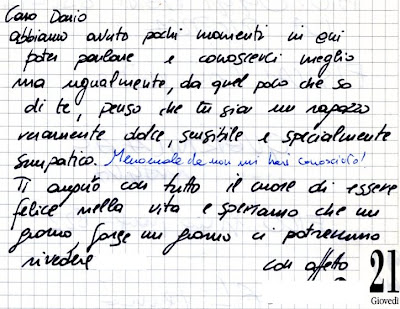 Caro Dario
abbiamo avuto pochi momenti in cui
poter parlare e conoscerci meglio
ma ugualmente, da quel poco che so
di te, penso che tu sia un ragazzo
veramente dolce, sensibile e specialmente
simpatico. Menomale che non mi hai conosciuto!
Ti auguro con tutto il cuore di essere
felice nella vita e speriamo che un
giorno, forse un giorno ci potremmo
rivedere
con affetto
21
Giovedì